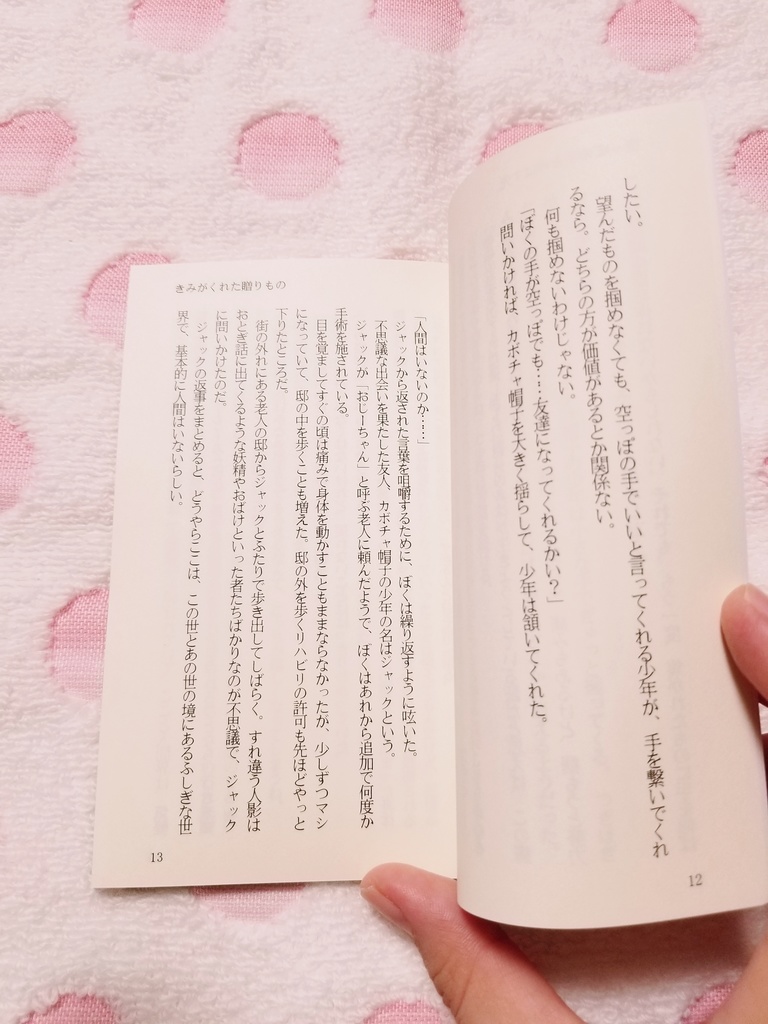 したい。
望んだものを掴めなくても、空っぽの手でいいと言ってくれる少年が、手を繋いでくれ
るなら。どちらの方が価値があるとか関係ない。
何も掴めないわけじゃない。
「ぼくの手が空っぽでも……友達になってくれるかい？」
問いかければ、カボチャ帽子を大きく揺らして、少年は頷いてくれた。
12
きみがくれた贈りもの
「人間はいないのか……」
ジャックから返された言葉を咀嚼するために、ぼくは繰り返すように呟いた。
不思議な出会いを果たした友人、カボチャ帽子の少年の名はジャックという。
ジャックが「おじーちゃん」と呼ぶ老人に頼んだようで、ぼくはあれから追加で何度か
手術を施されている。
目を覚ましてすぐの頃は痛みで身体を動かすこともままならなかったが、少しずつマシ
になっていて、邸の中を歩くことも増えた。邸の外を歩くリハビリの許可も先ほどやっと
下りたところだ。
街の外れにある老人の邸からジャックとふたりで歩き出してしばらく。すれ違う人影は
おとぎ話に出てくるような妖精やおばけといった者たちばかりなのが不思議で、ジャック
に問いかけたのだ。
ジャックの返事をまとめると、どうやらここは、この世とあの世の境にあるふしぎな世
界で、基本的に人間はいないらしい。
13